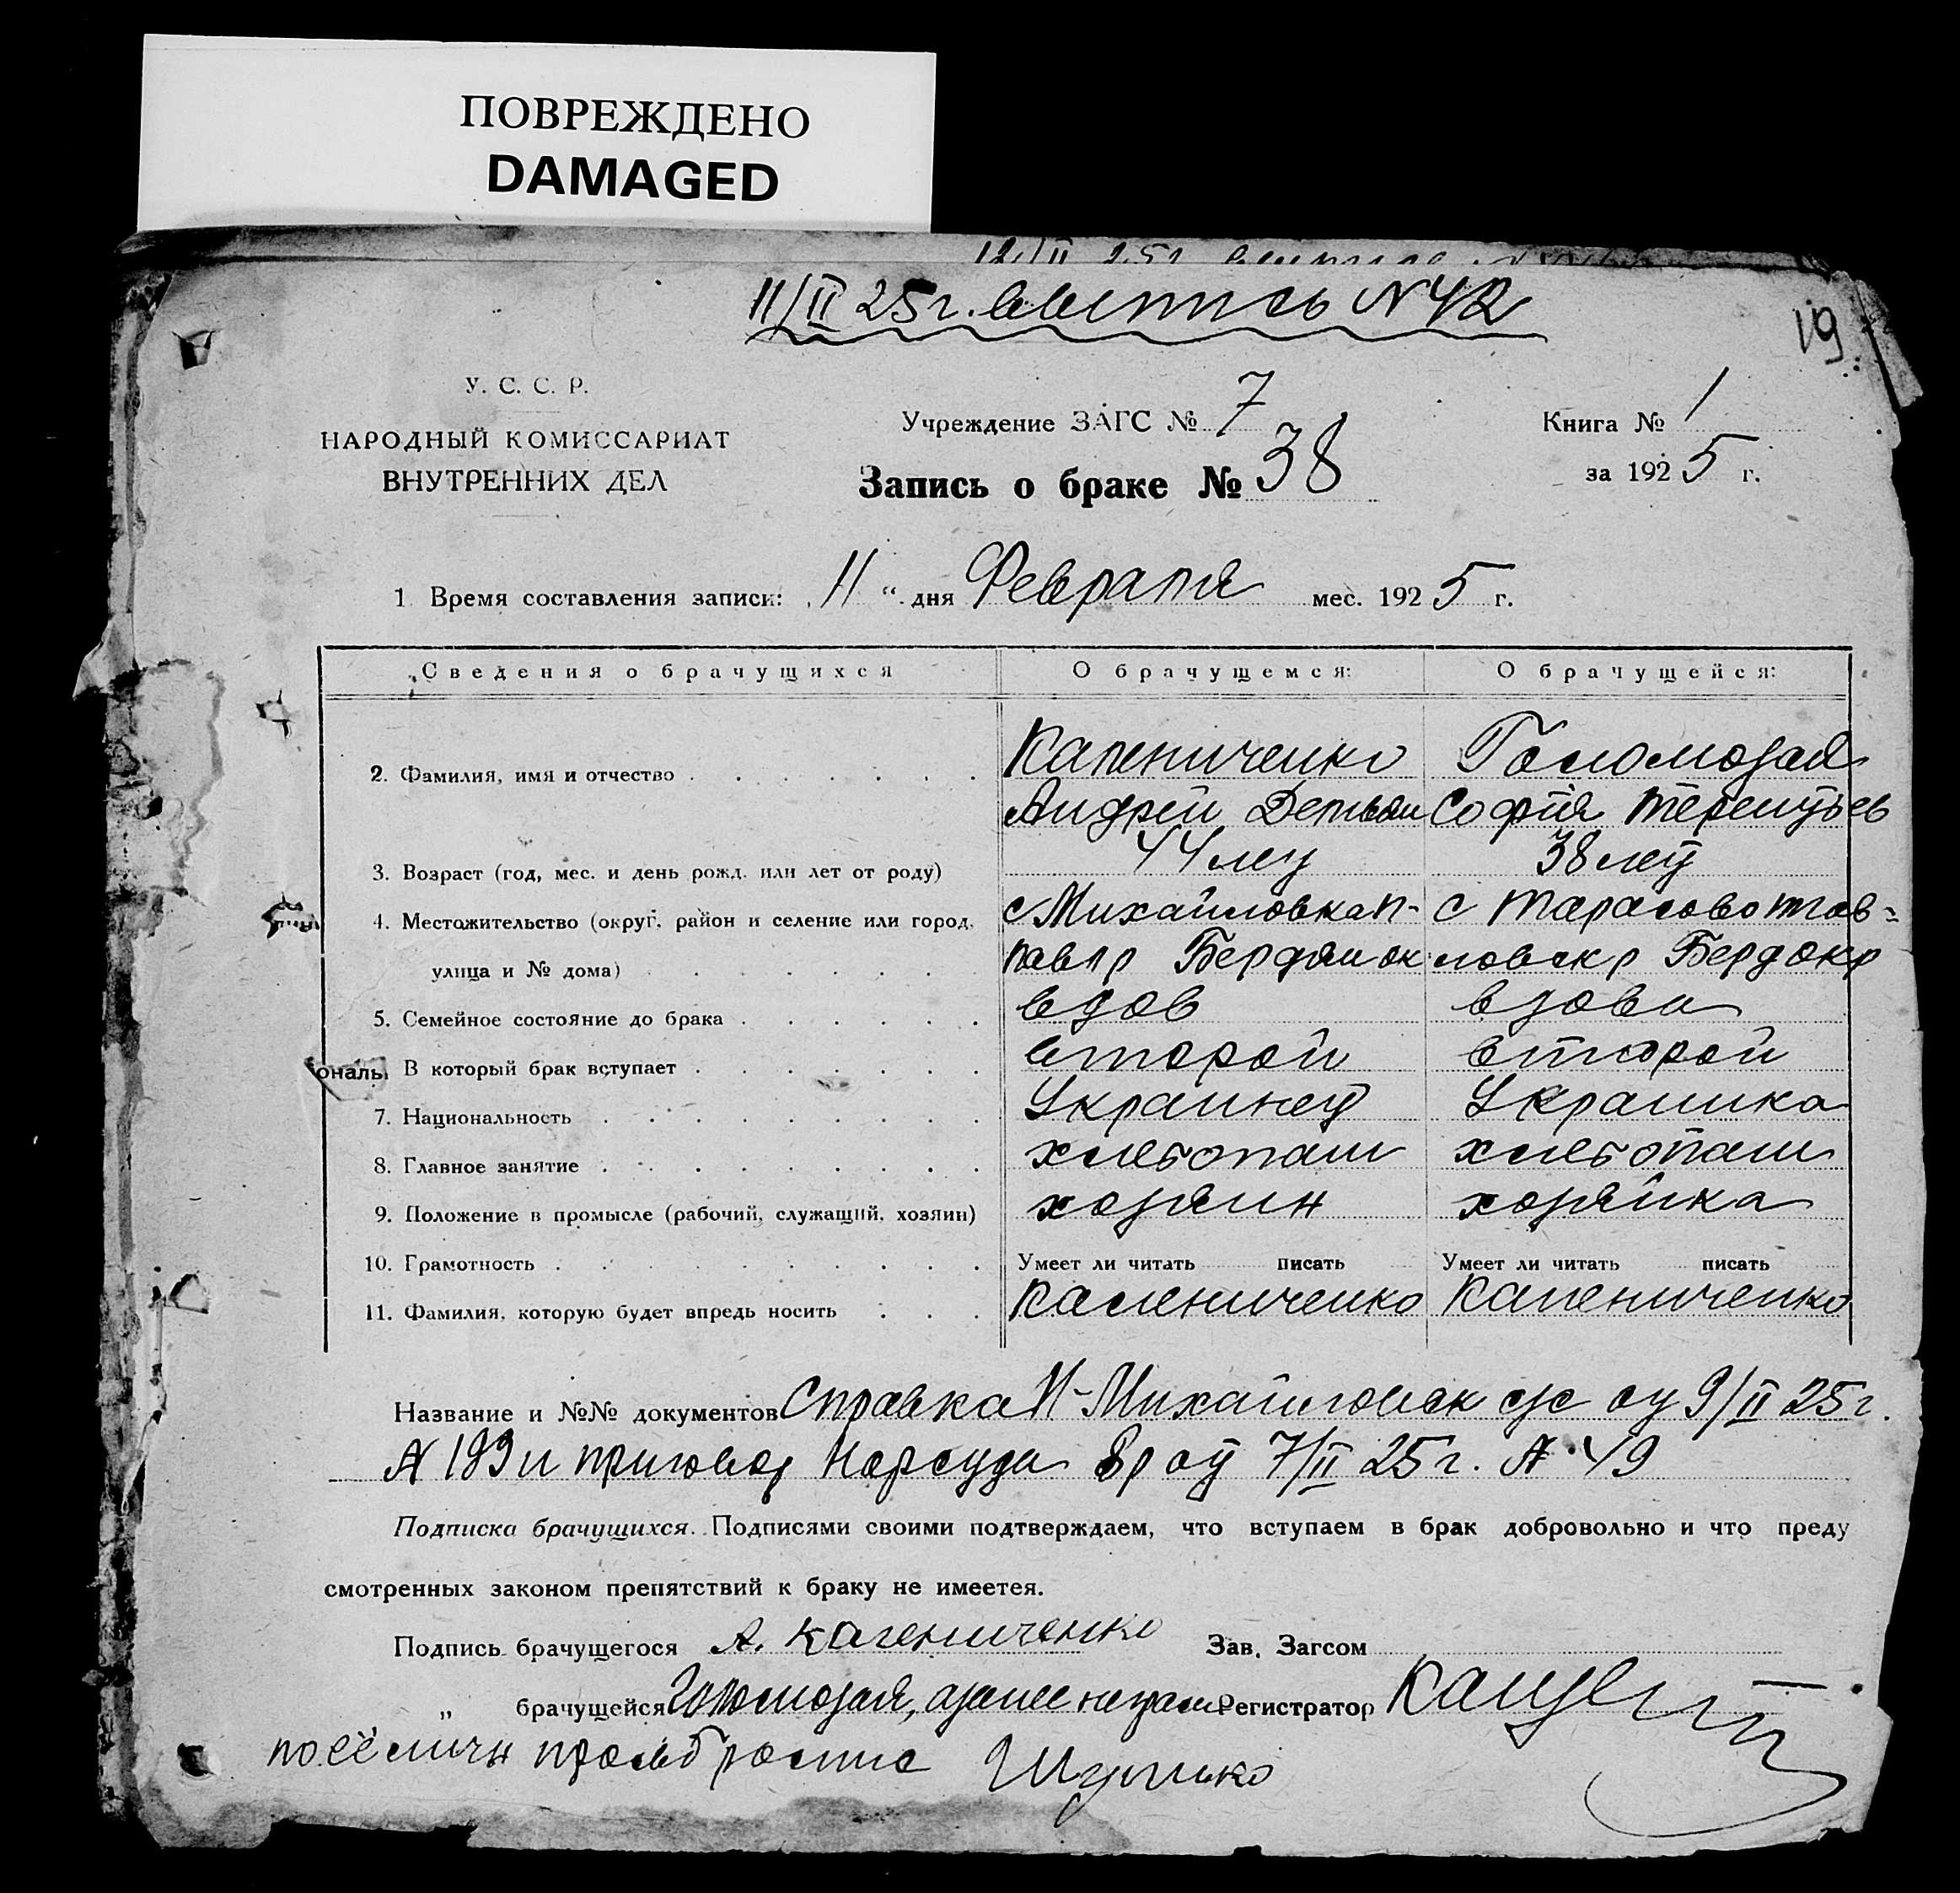 ПОВРЕЖДЕНО
DAMAGED
11/II 25 г. выпись N 42
19
У. С. С. Р.
НАРОДНЫЙ КОМИССАРИАТ
ВНУТРЕННИХ ДЕЛ
Учреждение ЗАГС № 7
Книга № 1
Запись о браке № 38
за 1925 г.
1. Время составления записи: 11 " дня Февраля мес. 1925 г.
Сведения о брачущихся О брачущемся: О брачущейся:
2. Фамилия, имя и отчество Калениченко Голомозая
Андрей Демьян София Терентьев
3. Возраст (год, мес. и день рожд. или лет от роду) 44 лет 38 лет
4. Местожительство (округ, район и селение или город, с Михайловка Н- с Тарасово Пав-
улица и № дома) павл р Бердян ок ловск р Берд окр
5. Семейное состояние до брака вдов вдова
ональ. В который брак вступает второй второй
7. Национальность Украинец Украинка
8. Главное занятие хлебопаш хлебопаш
9. Положение в промысле (рабочий, служащий, хозяин) хозяин хозяйка
10. Грамотность Умеет ли читать писать Умеет ли читать писать
11. Фамилия, которую будет впредь носить Калениченко Калениченко
Название и №№ документов Справка Н-Михайловск с/с от 9/II 25 г.
N 199 и приговор Нарсуда от 7/II 25 г. N 49
Подписка брачущихся. Подписями своими подтверждаем, что вступаем в брак добровольно и что преду
смотренных законом препятствий к браку не имеетея.
Подпись брачущегося А. Калениченко Зав. Загсом
„ брачущейся Голомозая, а за нее неграм Регистратор
по её личн просьб роспис